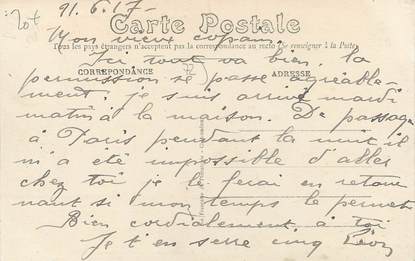 lot
91.6.17-
Carte Postale
Mon vieux copain
Tous les pays étrangers n'acceptent pas la correspondance au recto (Se renseigner à la Poste)
Ici tout va bien, la
CORRESPONDANCE
ADRESSE
permission se passe agréable-
ment, je suis arrivé mardi
matin à la maison. De passage
à Paris pendant la nuit il
m'a été impossible d'aller
chez toi je le ferai en retour
nant si mon temps le permet
Bien cordialement à toi
Je t'en serre cinq Léon